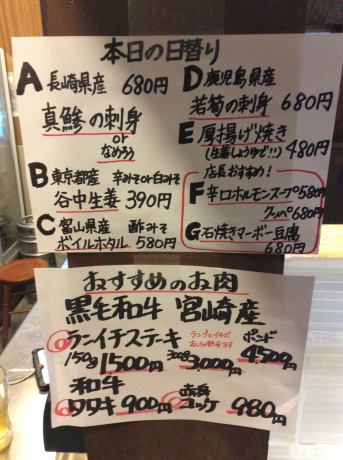 本日の日替り
A 長崎県産 680円
真鯵の刺身
or
なめろう
B 東京都産 辛みそor白みそ
谷中生姜 390円
C 富山県産 酢みそ
ボイルホタル 580円
D 鹿児島県産
若筍の刺身 680円
E 厚揚げ焼き
(生姜しょうゆで!!) 480円
店長おすすめ!
F 辛口ホルモンスープ 580円
クッパ 680円
G 石焼きマーボー豆腐
680円
おすすめのお肉
黒毛和牛 宮崎産
ランイチステーキ
150g 1,500円 300g 3,000円 ポンド 4,500円
和牛
タタキ 900円 ユッケ 980円